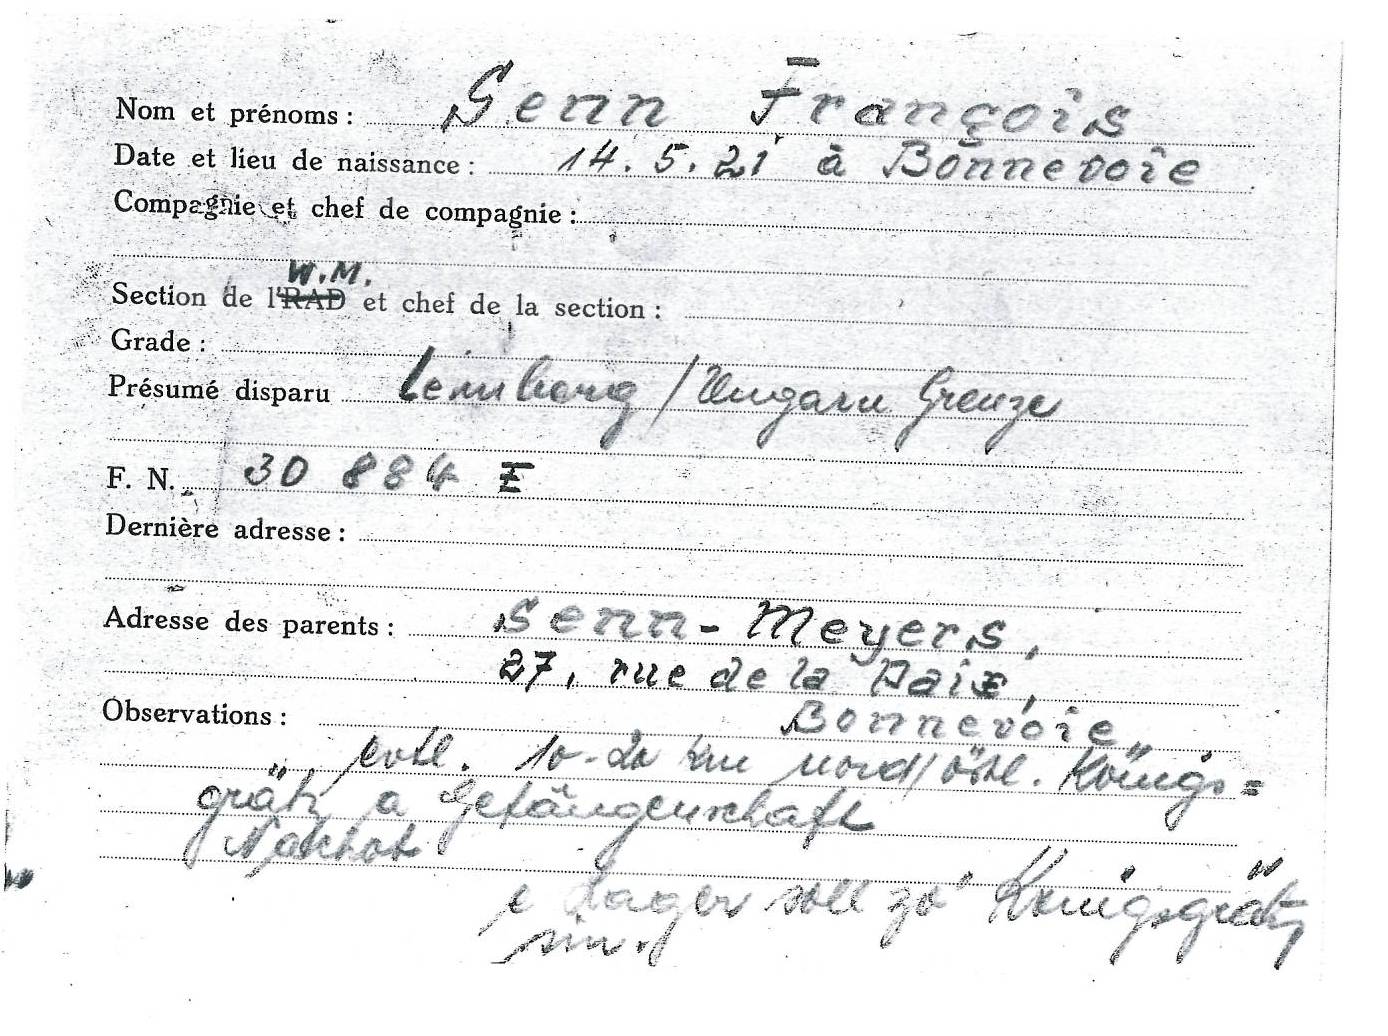 Nom et prénoms : Senn François
Date et lieu de naissance : 14. 5. 21 à Bonnevoie
Compagnie et chef de compagnie :
W.M.
Section de l'RAD et chef de la section :
Grade :
Présumé disparu Lemberg / Ungarn Grenze
F. N. 30 884 E
Dernière adresse :
Adresse des parents : Senn - Meyers,
27, rue de la Paix,
Bonnevoie
Observations :
evtl. 10-20 km nord/östl. Königs=
grätz a Gefängenschaft
e Lager soll zo Königsgrätz
sin.